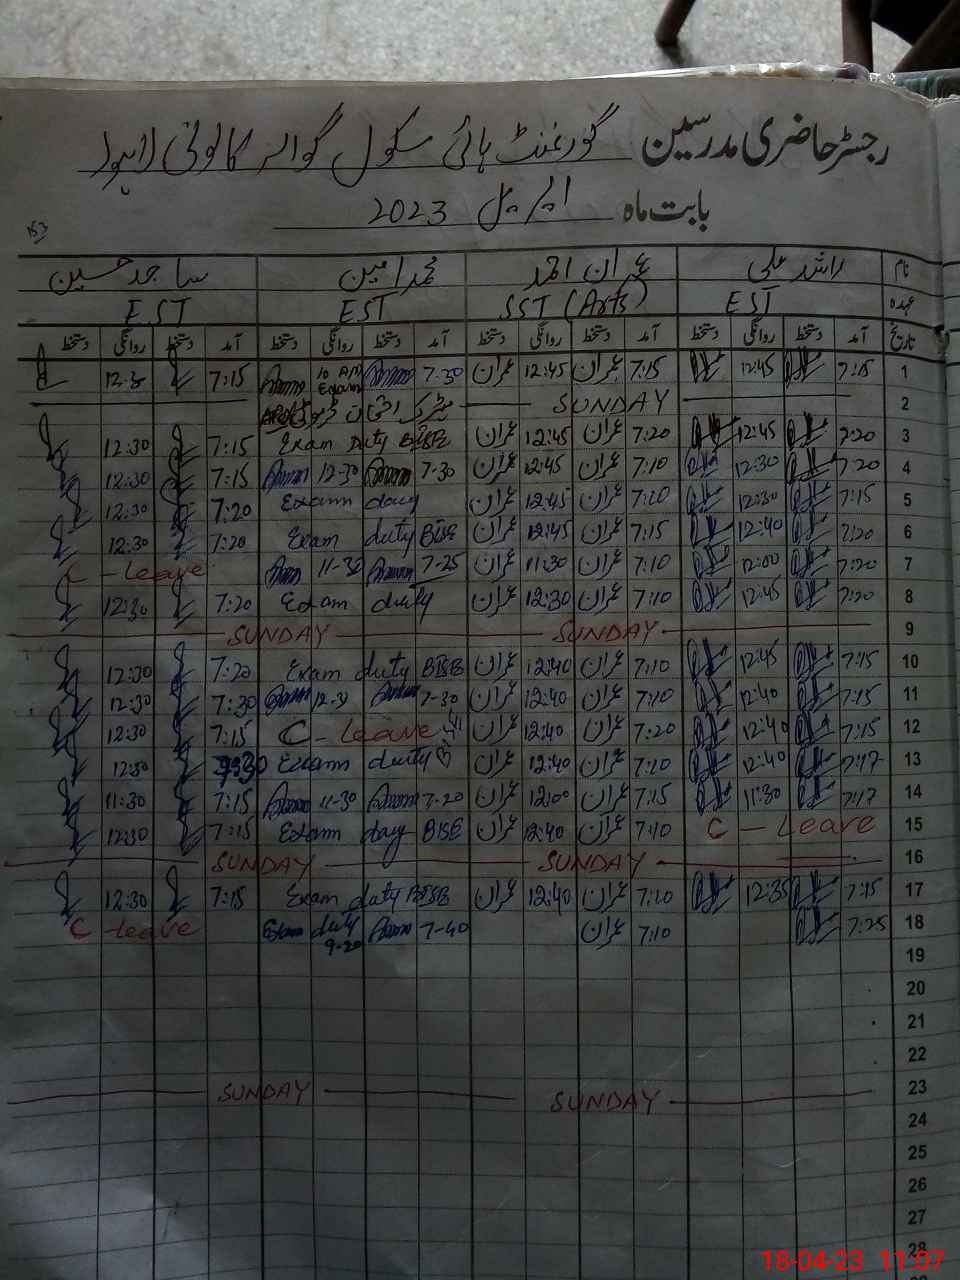 رجسٹر حاضری مدرسین گورنمنٹ ہائی سکول گوالہ کالونی لاہور
بابت ماہ اپریل 2023
153
نام راشد علی عمران احمد محمد امین ساجد حسین
عہدہ EST SST (Arts) EST EST
تاریخ آمد دستخط روانگی دستخط آمد دستخط روانگی دستخط آمد دستخط روانگی دستخط آمد دستخط روانگی دستخط
1 7:15 12:45 7:15 عمران 12:45 عمران 7-30 10 AM Exam 7:15
2 SUNDAY
3 7:20 12:45 7:20 عمران 12:45 عمران Exam Duty BISE 7:15 12:30
4 7:20 12:30 7:10 عمران 12:45 عمران 7-30 12-30 7:15 12:30
5 7:15 12:30 عمران 12:45 عمران Exam 7:20 12:30
6 7:20 12:40 7:15 عمران 12:45 عمران Exam duty BISE 7:20 12:30
7 7:20 12:00 7:10 عمران 11:30 عمران 7-25 11-30 C - Leave
8 7:20 12:45 7:10 عمران 12:30 عمران Exam duty 7:20 12:30
9 SUNDAY SUNDAY
10 7:15 12:45 7:10 عمران 12:40 عمران Exam duty BISE 7:20 12:30
11 7:15 12:40 7:10 عمران 12:40 عمران 7-30 7:30 12:30
12 7:15 12:40 7:20 عمران 12:40 عمران C - Leave 7:15 12:30
13 7:17 12:40 عمران 12:40 عمران Exam duty 12:30
14 7:17 11:30 7:15 عمران 12:00 عمران 7-20 11-30 7:15 11:30
15 C - Leave 7:10 عمران 12:40 عمران Exam BISE 7:15 12:30
16 SUNDAY SUNDAY
17 7:15 12:35 عمران 12:40 عمران Exam duty BISE 7:15 12:30
18 7:25 7:10 عمران 7-40 Exam duty 9-20 C - Leave
19
20
21
22
23 SUNDAY SUNDAY
24
25
26
27
28
18-04-23 11:07